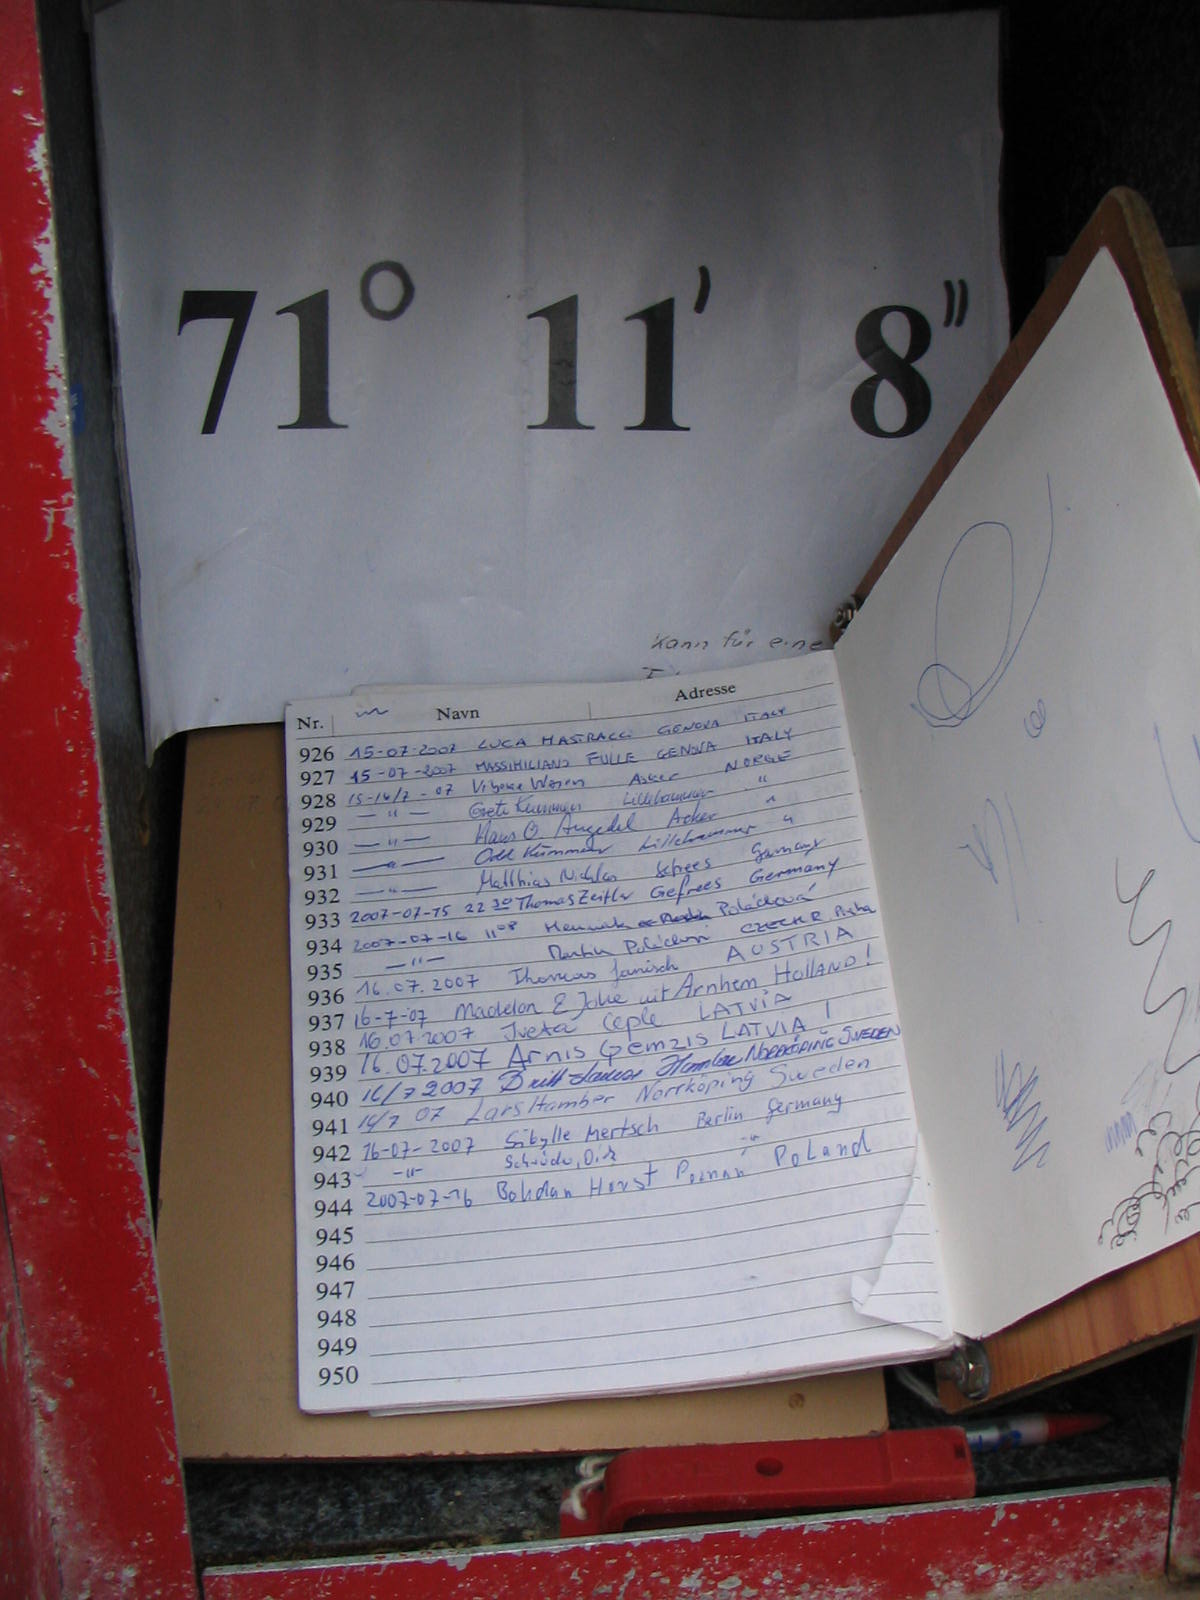 71° 11' 8"
Kann für eine
Nr. Navn Adresse
926 15-07-2007 LUCA MASTRACCI GENOVA ITALY
927 15-07-2007 MASSIMILIANO FULLE GENOVA ITALY
928 15-16/7-07 Asker NORGE
929 — " — Grete Lillehammer "
930 — " — Hans O. Asker "
931 — " — Odd Lillehammer "
932 — " — Matthias Nicklas Gefrees Germany
933 2007-07-15 22 30 Thomas Zeitler Gefrees Germany
934 2007-07-16 11 08 Poláčková
935 — " — CZECH R. Praha
936 16.07.2007 Thomas Janisch AUSTRIA
937 16-7-07 Madelon & Joke uit Arnhem Holland!
938 16.07.2007 Iveta Ceple LATVIA
939 16.07.2007 Arnis Gemzis LATVIA!
940 16/7 2007 NORRKÖPING SWEDEN
941 16/7 07 Lars Hamber Norrköping Sweden
942 16-07-2007 Sibylle Mertsch Berlin Germany
943 -"- -"-
944 2007-07-16 Bohdan Horst Poznań Poland
945
946
947
948
949
950